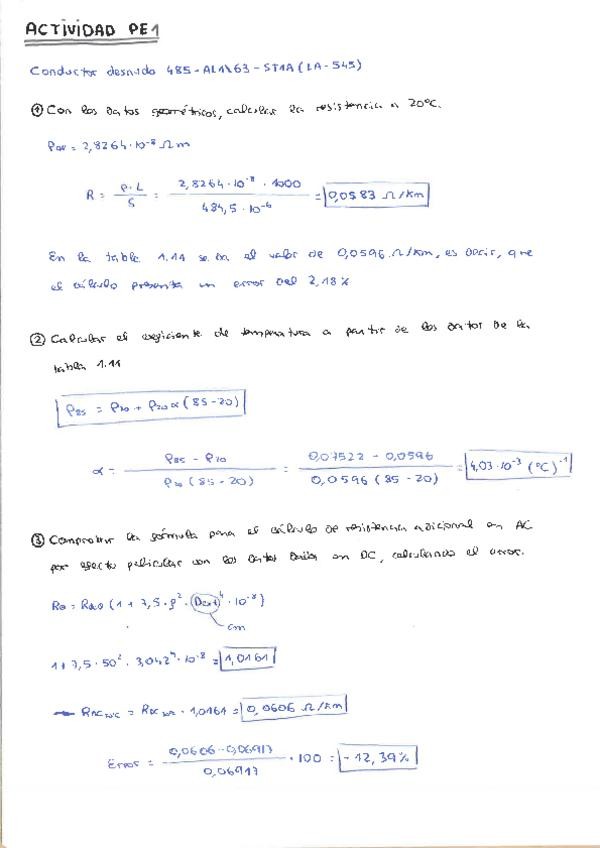 ACTIVIDAD PE1
Conductor desnudo 485-AL1\63-ST1A (LA-545)
① Con los datos geométricos, calcular la resistencia a 20ºC.
ρ20 = 2,8264·10⁻⁸ Ω m
R = ρ·L / S = 2,8264·10⁻⁸ · 1000 / 484,5·10⁻⁶ = 0,0583 Ω/km
En la tabla 1.14 se da el valor de 0,0596 Ω/km, es decir, que
el cálculo presenta un error del 2,18%
② Calcular el coeficiente de temperatura a partir de los datos de la
tabla 1.11
ρ85 = ρ20 + ρ20 α (85-20)
α = ρ85 - ρ20 / ρ20 (85-20) = 0,07522 - 0,0596 / 0,0596 (85-20) = 4,03·10⁻³ (ºC)⁻¹
③ Comprobar la fórmula para el cálculo de resistencia adicional en AC
por efecto pelicular con los datos en DC, calculando el error.
(1 + 7,5 · f² · Dext⁴ · 10⁻⁸)
cm
1+7,5·50²·3,042⁴·10⁻⁸ = 1,0161
· 1,0161 = 0,0606 Ω/km
Error = 0,0606-0,06917 / 0,06917 · 100 = -12,39%